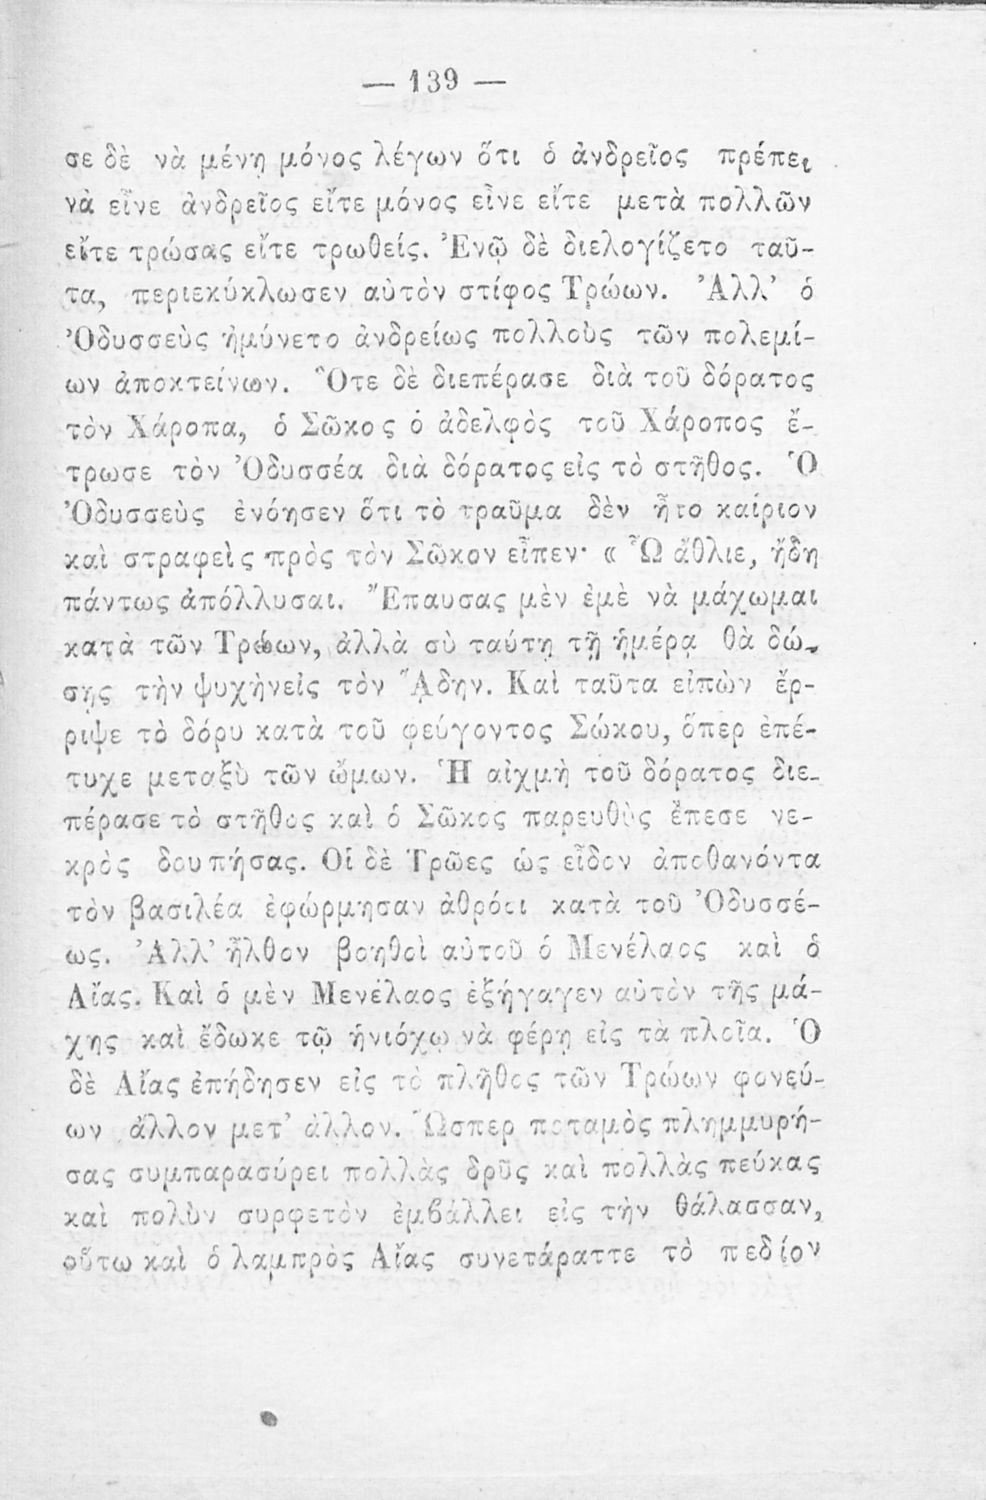 — 139 —
σε δὲ νὰ μένῃ μόνος λέγων ὅτι ὁ ἀνδρεῖος πρέπει
νὰ εἶνε ἀνδρεῖος εἴτε μόνος εἶνε εἴτε μετὰ πολλῶν
εἴτε τρώσας εἴτε τρωθείς. Ἐνῷ δὲ διελογίζετο ταῦ-
τα, περιεκύκλωσεν αὐτὸν στίφος Τρώων. Ἀλλ’ ὁ
Ὀδυσσεὺς ἠμύνετο ἀνδρείως πολλοὺς τῶν πολεμί-
ων ἀποκτείνων. Ὅτε δὲ διεπέρασε διὰ τοῦ δόρατος
τὸν Χάροπα, ὁ Σῶκος ὁ ἀδελφὸς τοῦ Χάροπος ἔ-
τρωσε τὸν Ὀδυσσέα διὰ δόρατος εἰς τὸ στῆθος. Ὁ
Ὀδυσσεὺς ἐνόησεν ὅτι τὸ τραῦμα δὲν ἦτο καίριον
καὶ στραφεὶς πρὸς τὸν Σῶκον εἶπεν· « Ὦ ἄθλιε, ἤδη
πάντως ἀπόλλυσαι. Ἔπαυσας μὲν ἐμὲ νὰ μάχωμαι
κατὰ τῶν Τρώων, ἀλλὰ σὺ ταύτῃ τῇ ἡμέρᾳ θὰ δώ-
σῃς τὴν ψυχὴνεἰς τὸν Ἅδην. Καὶ ταῦτα εἰπὼν ἔρ-
ριψε τὸ δόρυ κατὰ τοῦ φεύγοντος Σώκου, ὅπερ ἐπέ-
τυχε μεταξὺ τῶν ὤμων. Ἡ αἰχμὴ τοῦ δόρατος διε-
πέρασε τὸ στῆθος καὶ ὁ Σῶκος παρευθὺς ἔπεσε νε-
κρὸς δουπήσας. Οἱ δὲ Τρῶες ὡς εἶδον ἀποθανόντα
τὸν βασιλέα ἐφώρμησαν ἀθρόοι κατὰ τοῦ Ὀδυσσέ-
ως. Ἀλλ’ ἦλθον βοηθοὶ αὐτοῦ ὁ Μενέλαος καὶ ὁ
Αἴας. Καὶ ὁ μὲν Μενέλαος ἐξήγαγεν αὐτὸν τῆς μά-
χης καὶ ἔδωκε τῷ ἡνιόχῳ νὰ φέρῃ εἰς τὰ πλοῖα. Ὁ
δὲ Αἴας ἐπήδησεν εἰς τὸ πλῆθος τῶν Τρώων φονεύ-
ων ἄλλον μετ’ ἄλλον. Ὥσπερ ποταμὸς πλημμυρή-
σας συμπαρασύρει πολλὰς δρῦς καὶ πολλὰς πεύκας
καὶ πολὺν συρφετὸν ἐμβάλλει εἰς τὴν θάλασσαν,
οὕτω καὶ ὁ λαμπρὸς Αἴας συνετάραττε τὸ πεδίον